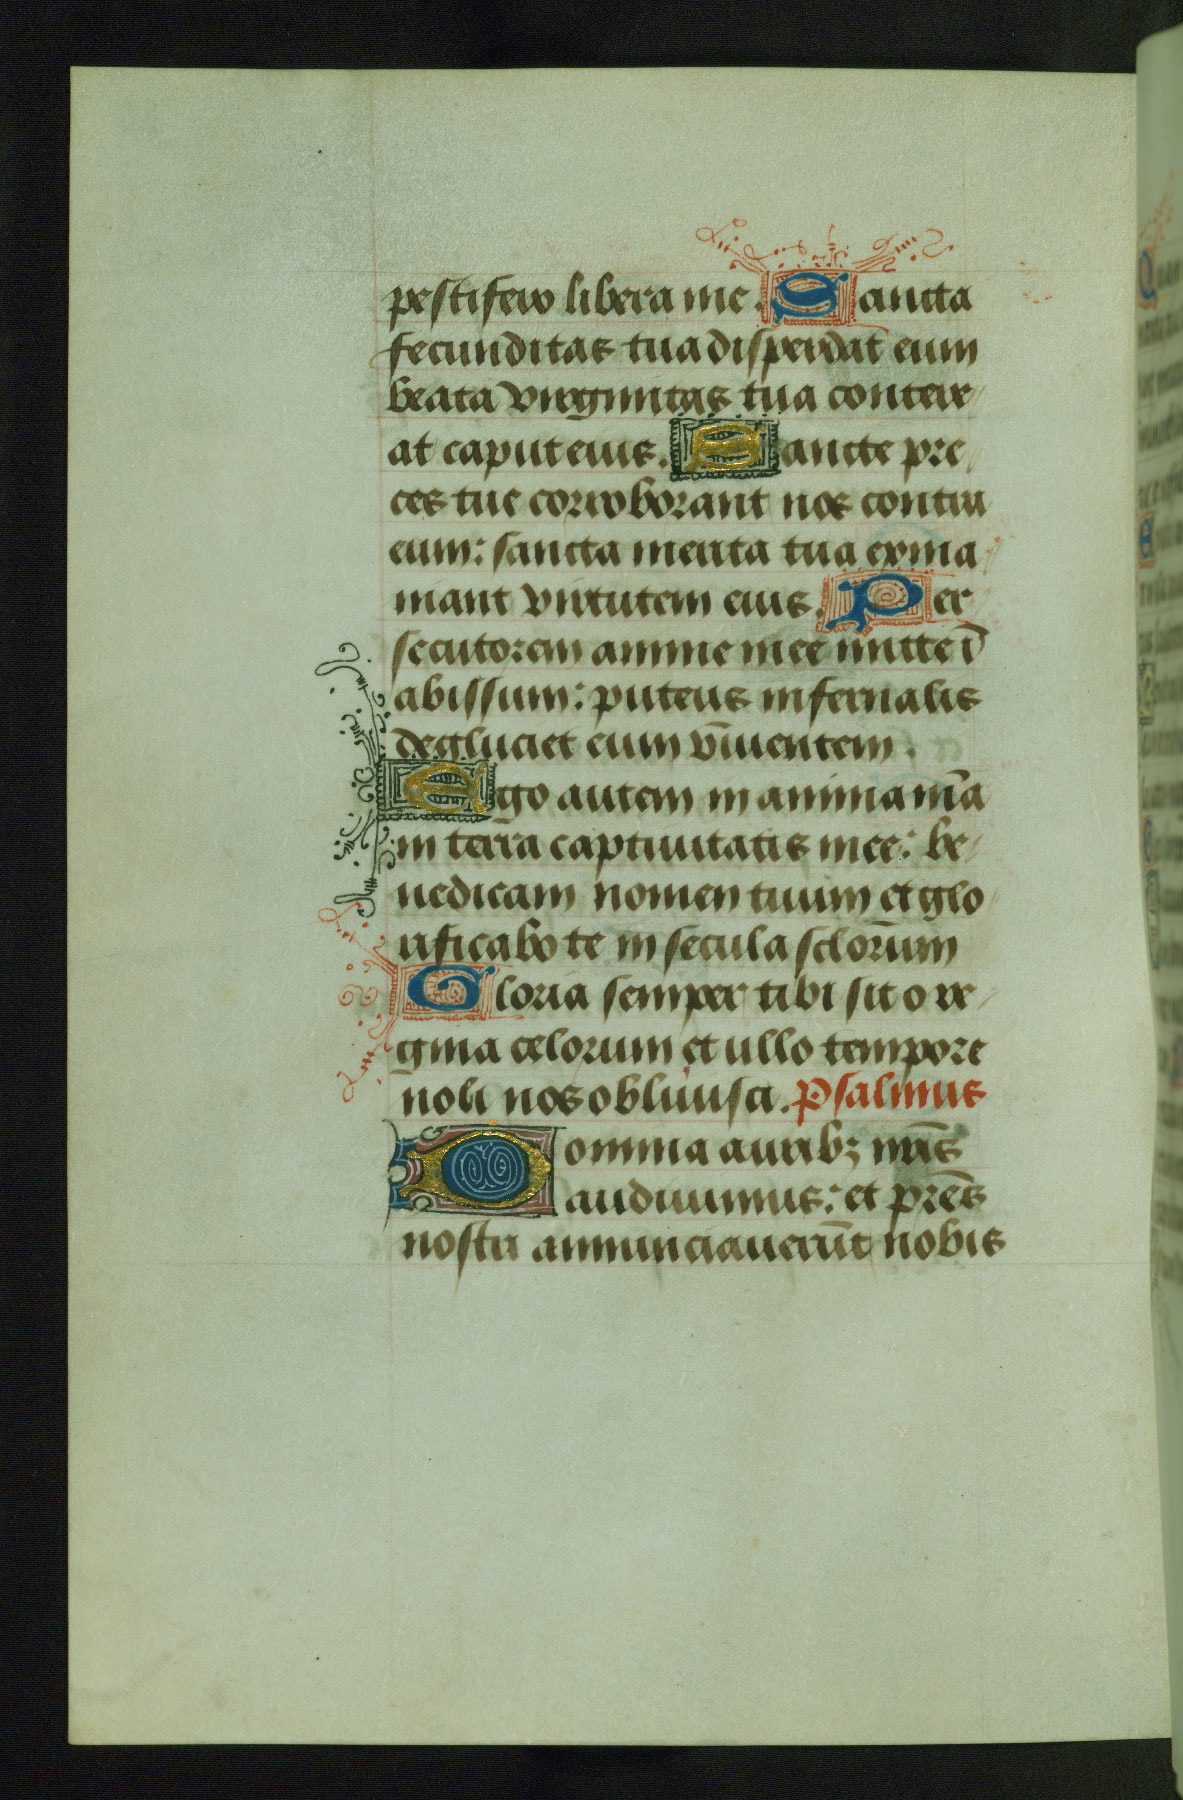 pestifero libera me. Sancta
fecunditas tua disperdat eum
beata virginitas tua conter
at caput eius. Sancte pre
ces tue corroborant nos contra
eum: sancta merita tua exina
niant virtutem eius. Per
secutorem anime mee mitte ī
abissum: puteus infernalis
degluciet eum viventem.
Ego autem in anima m̄a
in terra captivitatis mee: be
nedicam nomen tuum et glo
rificabo te in secula sclorum
Gloria semper tibi sit o re
gina celorum et ullo tempore
noli nos oblivisci. Psalmus
Domina auribꝫ nr̄is
audivimus: et pr̄es
nostri annunciaverūt nobis